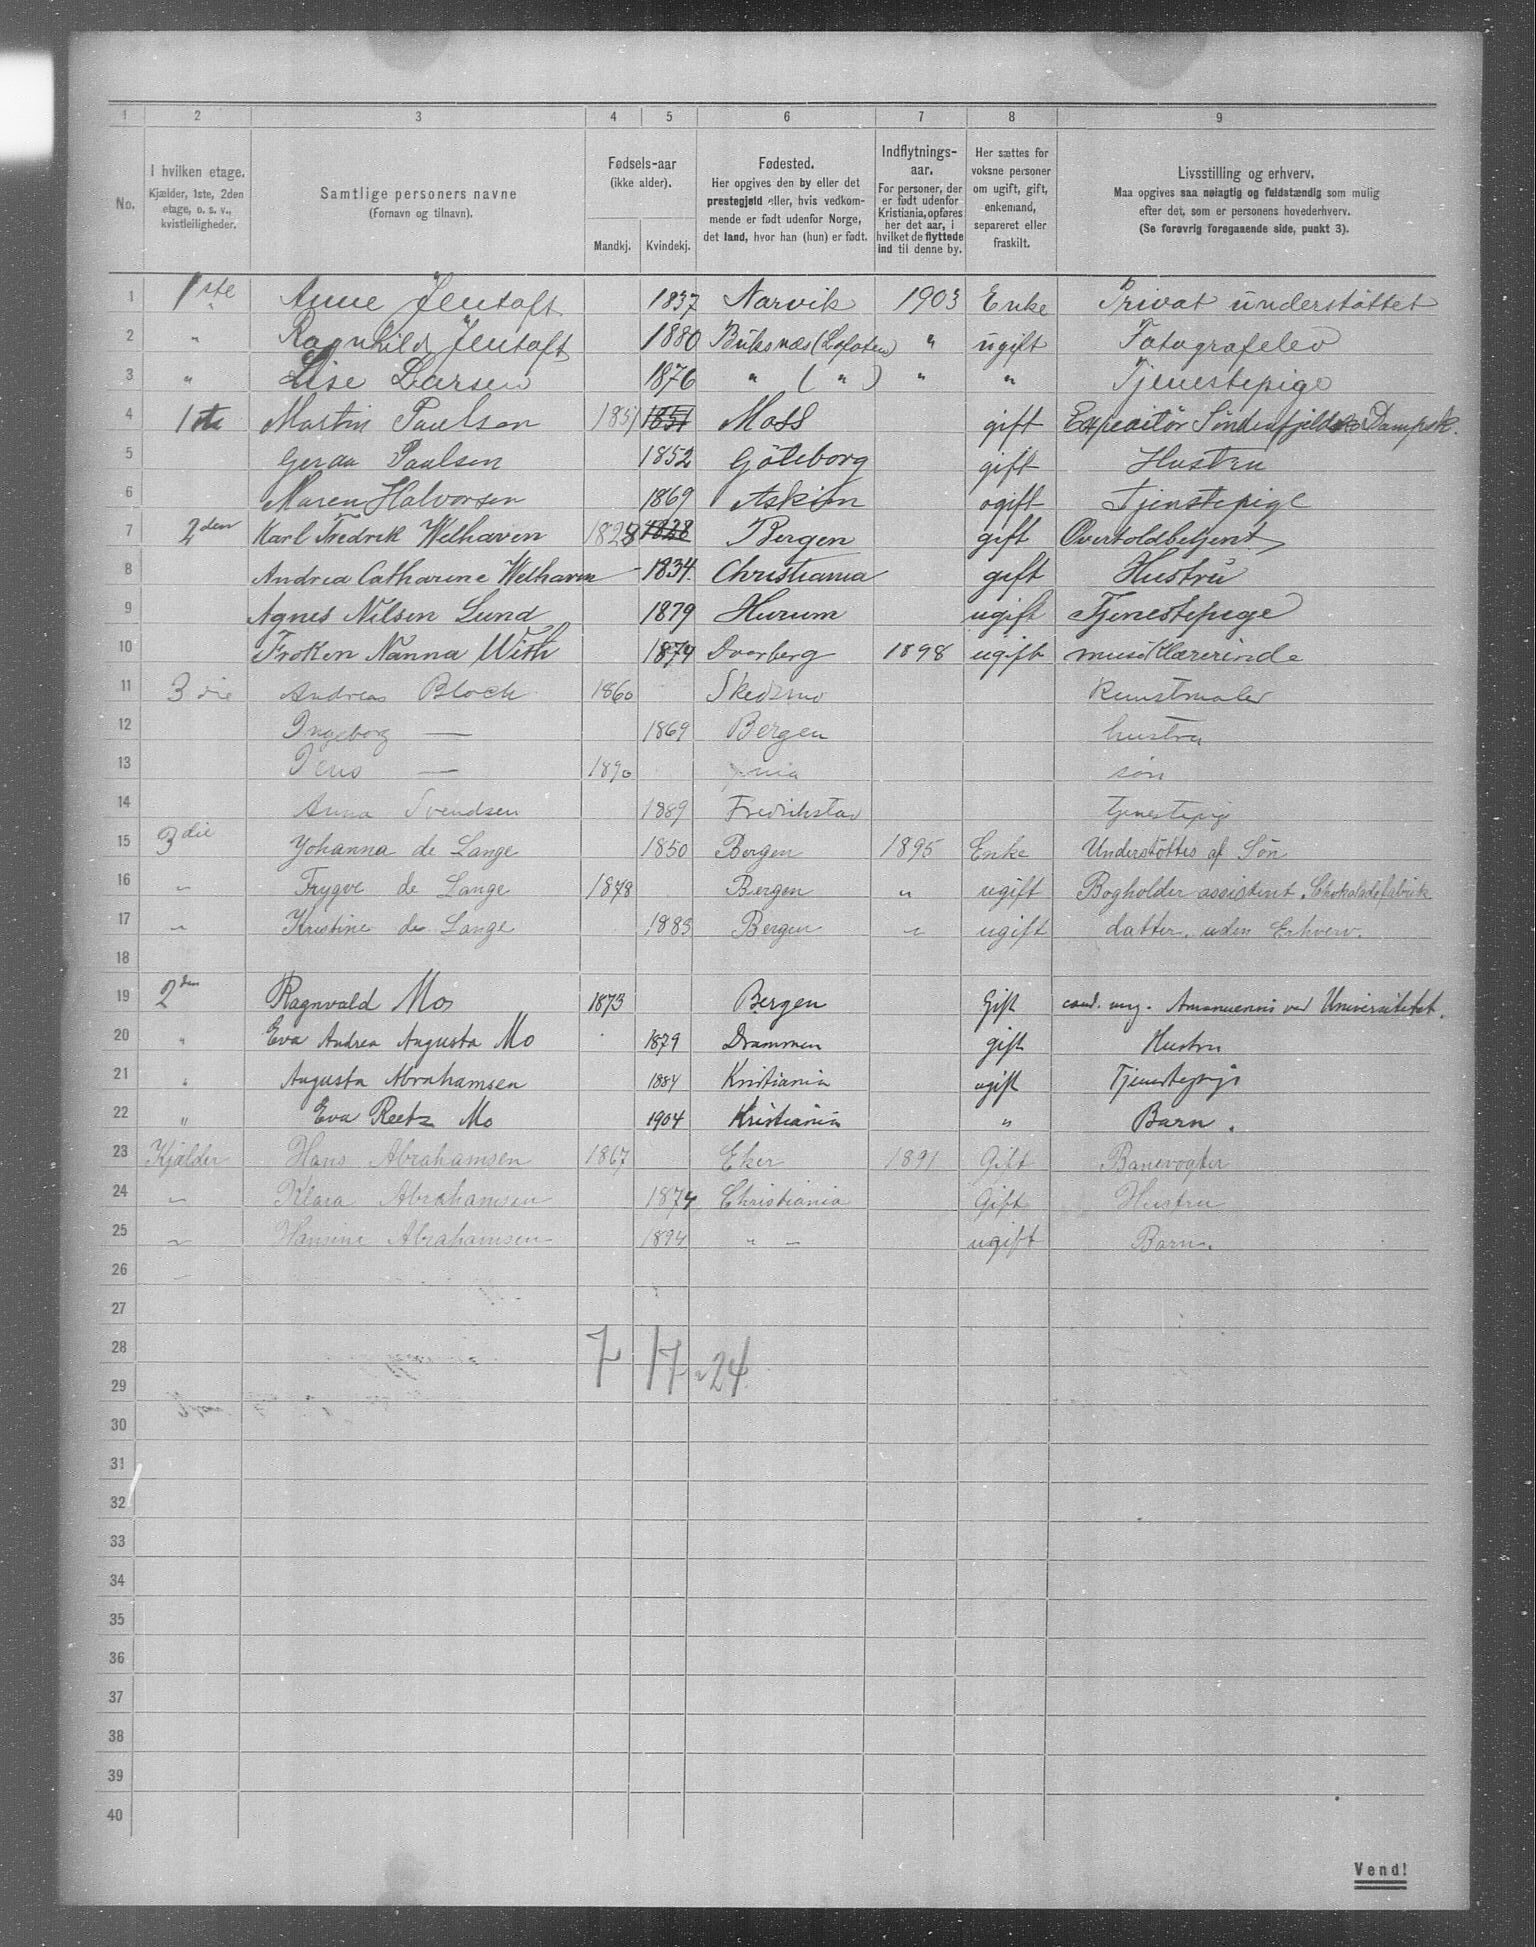 1 2 3 4 5 6 7 8 9
No.
I hvilken etage.
Kjælder, 1ste, 2den
etage, o. s. v.,
kvistleiligheder.
Samtlige personers navne
(Fornavn og tilnavn).
Fødsels-aar
(ikke alder).
Mandkj. Kvindekj.
Fødested.
Her opgives den by eller det
prestegjeld eller, hvis vedkom-
mende er født udenfor Norge,
det land, hvor han (hun) er født.
Indflytnings-
aar.
For personer, der
er født udenfor
Kristiania, opføres
her det aar, i
hvilket de flyttede
ind til denne by.
Her sættes for
voksne personer
om ugift, gift,
enkemand,
separeret eller
fraskilt.
Livsstilling og erhverv.
Maa opgives saa nøiagtig og fuldstændig som mulig
efter det, som er personens hovederhverv.
(Se forøvrig foregaaende side, punkt 3).
1 1ste Anne Jentoft 1837 Narvik 1903 Enke Privat understøttet
2 " Ragnhild Jentoft 1880 Buksnæs (Lofoten) " ugift Fotografelev
3 " Lise Larsen 1876 " ( " ) " " Tjenestepige
4 1ste Martin Paulsen 1851 1851 Moss gift Expeditör Söndenfjeldske Dampsk.
5 Gerda Paulsen 1852 Göteborg gift Hustru
6 Maren Halvorsen 1869 Askim ugift Tjenstepige
7 2den Karl Fredrik Welhaven 1828 1828 Bergen gift Overtoldbetjent
8 Andrea Catharine Welhaven 1834. Christiania gift Hustru
9 Agnes Nilsen Lund 1879 Hurum ugift Tjenestepige
10 Frøken Nanna With 1874 Dverberg 1898 ugift musiklærerinde
11 3die Andreas Bloch 1860 Skedsmo Kunstmaler
12 Ingeborg — 1869 Bergen hustru
13 Jens — 1890 søn
14 Anna Svendsen 1889 Fredrikstad tjenestepig
15 3die Johanna de Lange 1850 Bergen 1895 Enke Understøttes af Søn
16 " Trygve de Lange 1878 Bergen " ugift Bogholder assistent. Chokoladefabrik
17 " Kristine de Lange 1883 Bergen " ugift datter, uden Erhverv.
18
19 2den Ragnvald Mo 1873 Bergen Gift cand. mag. Amanuensis ved Universitetet.
20 " Eva Andrea Augusta Mo 1879 Drammen gift Hustru
21 " Augusta Abrahamsen 1884 Kristiania ugift Tjenestepige
22 " Eva Reetz Mo 1904 Kristiania " Barn.
23 Kjælder Hans Abrahamsen 1867 Eker 1891 Gift Banevogter
24 " Klara Abrahamsen 1874 Christiania Gift Hustru
25 " Hansine Abrahamsen 1894 " " ugift Barn.
26
27
28 7 17 = 24.
29
30
31
32
33
34
35
36
37
38
39
40
Vend!